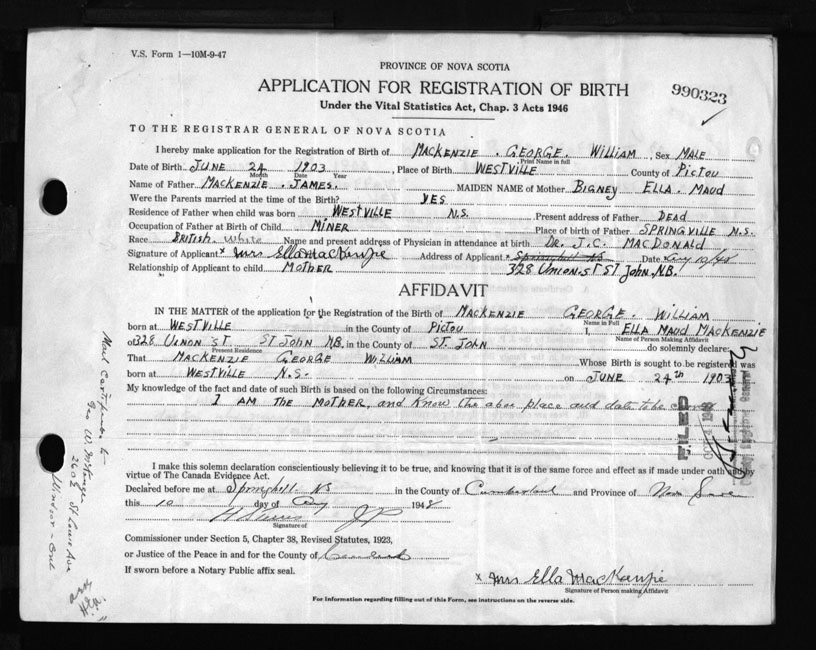 V.S. Form 1—10M-9-47
PROVINCE OF NOVA SCOTIA
APPLICATION FOR REGISTRATION OF BIRTH
990323
Under the Vital Statistics Act, Chap. 3 Acts 1946
TO THE REGISTRAR GENERAL OF NOVA SCOTIA
I hereby make application for the Registration of Birth of MACKENZIE . GEORGE. WILLIAM, Sex MALE
Print Name in full
Date of Birth JUNE 24 1903, Place of Birth WESTVILLE County of PICTOU
Month Date Year
Name of Father MACKENZIE . JAMES. MAIDEN NAME of Mother BIGNEY ELLA. MAUD
Were the Parents married at the time of the Birth? YES
Residence of Father when child was born WESTVILLE N.S. Present address of Father DEAD
Occupation of Father at Birth of Child MINER Place of birth of Father SPRINGVILLE N.S.
Race BRITISH. White Name and present address of Physician in attendance at birth DR. J.C. MACDONALD
Signature of Applicant x Mrs Ella MacKenzie Address of Applicant Springhill NS Date Aug 10/48
Relationship of Applicant to child MOTHER 328 UNION ST ST JOHN, N.B.
AFFIDAVIT
IN THE MATTER of the application for the Registration of the Birth of MACKENZIE GEORGE. WILLIAM
Name in Full
born at WESTVILLE in the County of PICTOU ELLA MAUD MACKENZIE
Name of Person Making Affidavit
of 328 UNION ST ST JOHN NB. in the County of ST. JOHN do solemnly declare:
Present Residence
That MACKENZIE GEORGE WILLIAM Whose Birth is sought to be registered was
born at WESTVILLE N.S. on JUNE 24TH 1903
My knowledge of the fact and date of such Birth is based on the following Circumstances:
I AM THE MOTHER, and know the above place and date to be
FILED
I make this solemn declaration conscientiously believing it to be true, and knowing that it is of the same force and effect as if made under oath and by
virtue of The Canada Evidence Act.
Declared before me at Springhill NS in the County of Cumberland and Province of Nova Scotia
this 10 day of Aug 1948
J.P.
Signature of
Commissioner under Section 5, Chapter 38, Revised Statutes, 1923,
or Justice of the Peace in and for the County of Cumberland
If sworn before a Notary Public affix seal.
x Mrs Ella MacKenzie
Signature of Person making Affidavit
For Information regarding filling out of this Form, see instructions on the reverse side.
Mail Certificate to
Geo W. McKenzie
2602 St Louis Ave
Windsor - Ont